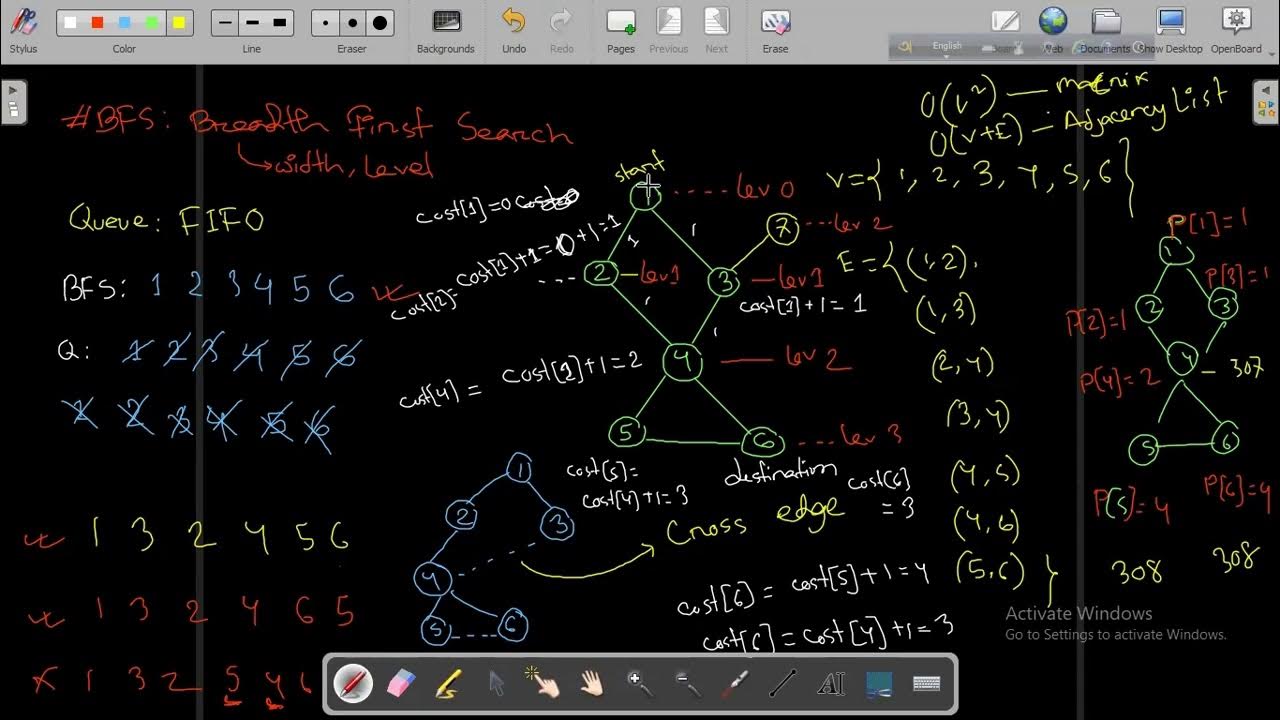 Stylus
Color
Line
Eraser
Backgrounds
Undo
Redo
Pages
Previous
Next
Erase
English
Web
Documents
Show Desktop
OpenBoard
#BFS: Breadth First Search
width, Level
Queue: FIFO
BFS: 1 2 3 4 5 6
Q: 1 2 3 4 5 6
1 2 3 4 5 6
1 3 2 4 5 6
1 3 2 4 6 5
x 1 3 2 5 4 6
start
lev 0
cost[1]=0
7
lev 2
1
1
cost[2]= cost[1]+1=0+1=1
2
lev 1
3
lev 1
cost[1]+1=1
1
1
4
lev 2
cost[4] = cost[2]+1=2
5
6
lev 3
cost[5]=
cost[4]+1=3
destination
cost[6]
=3
1
2
3
4
5
6
Cross edge
cost[6] = cost[5]+1=4
cost[6] = cost[4]+1=3
O(V²) — matrix
O(V+E) — Adjacency List
V={ 1, 2, 3, 4, 5, 6 }
E={ (1,2),
(1,3)
(2,4)
(3,4)
(4,5)
(4,6)
(5,6) }
P[1]=1
1
P[3]=1
2
3
P[2]=1
4
307
P[4]=2
5
6
P[5]=4
P[6]=4
308
308
Activate Windows
Go to Settings to activate Windows.